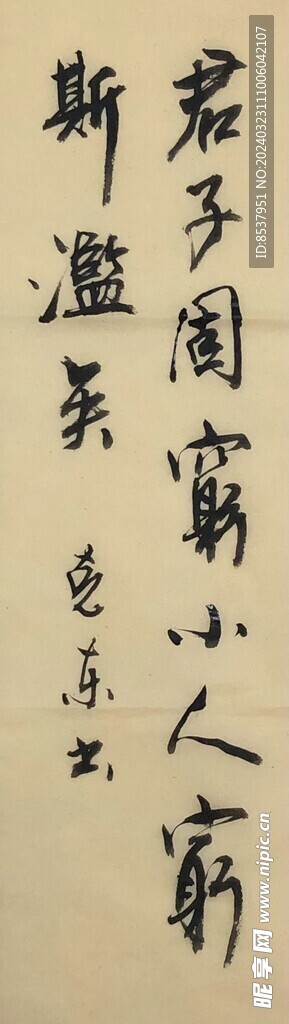 君子固窮小人窮
斯濫矣
克东书
ID:8537951 NO:20240323111006042107
昵享网 www.nipic.cn